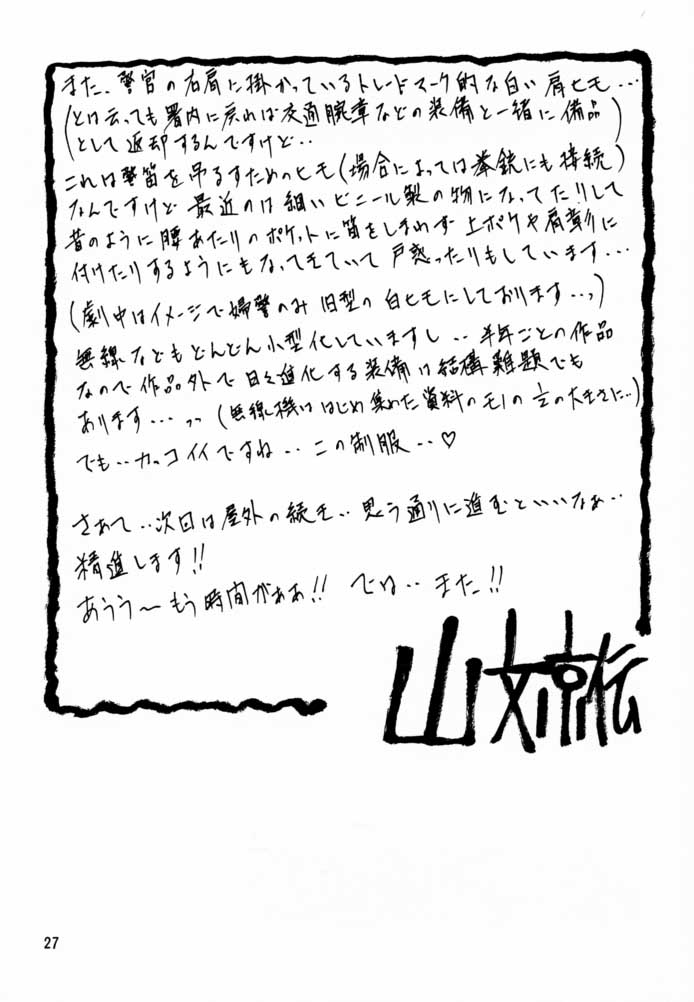 また、警官の右肩に掛かっているトレードマーク的な白い肩ヒモ…
(とは云っても署内に戻れば交通腕章などの装備と一緒に備品
として返却するんですけど‥)
これは警笛を吊るすためのヒモ(場合によっては拳銃にも接続)
なんですけど最近のは細いビニール製の物になってたりして
昔のように腰あたりのポケットに笛をしまわず上ポケや肩章に
付けたりするようにもなってきていて戸惑ったりもしています…
(劇中はイメージで婦警のみ旧型の白ヒモにしております‥)
無線などもどんどん小型化していますし‥半年ごとの作品
なので作品外で日々進化する装備は結構難題でも
あります…(無線機ははじめ集めた資料のモノの1/2の大きさに‥)
でも‥カッコイイですね‥この制服‥♡
さあて‥次回は屋外の続き‥思う通りに進むといいなぁ‥
精進します!!
あうう〜もう時間がぁあ!!では‥また!!
山文京伝
27